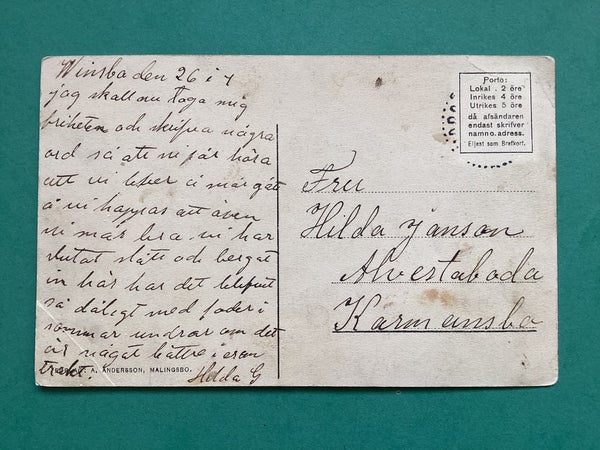 Winsbo den 26 i 7
jag skall nu taga mig
friheten och skrifva några
ord så att ni får höra
att vi lefver å mår gått
å vi happas att även
ni mår bra vi har
slutat slått och bergat
in här har det blifvit
så dåligt med foder i
sommar undrar om det
är nagåt bättre i eran
trakt. Hilda G
A. ANDERSSON, MALINGSBO.
Porto:
Lokal . 2 öre
Inrikes 4 öre
Utrikes 5 öre
då afsändaren
endast skrifver
namn o. adress.
Eljest som Brefkort.
Fru
Hilda Janson
Alvestaboda
Karmansbo